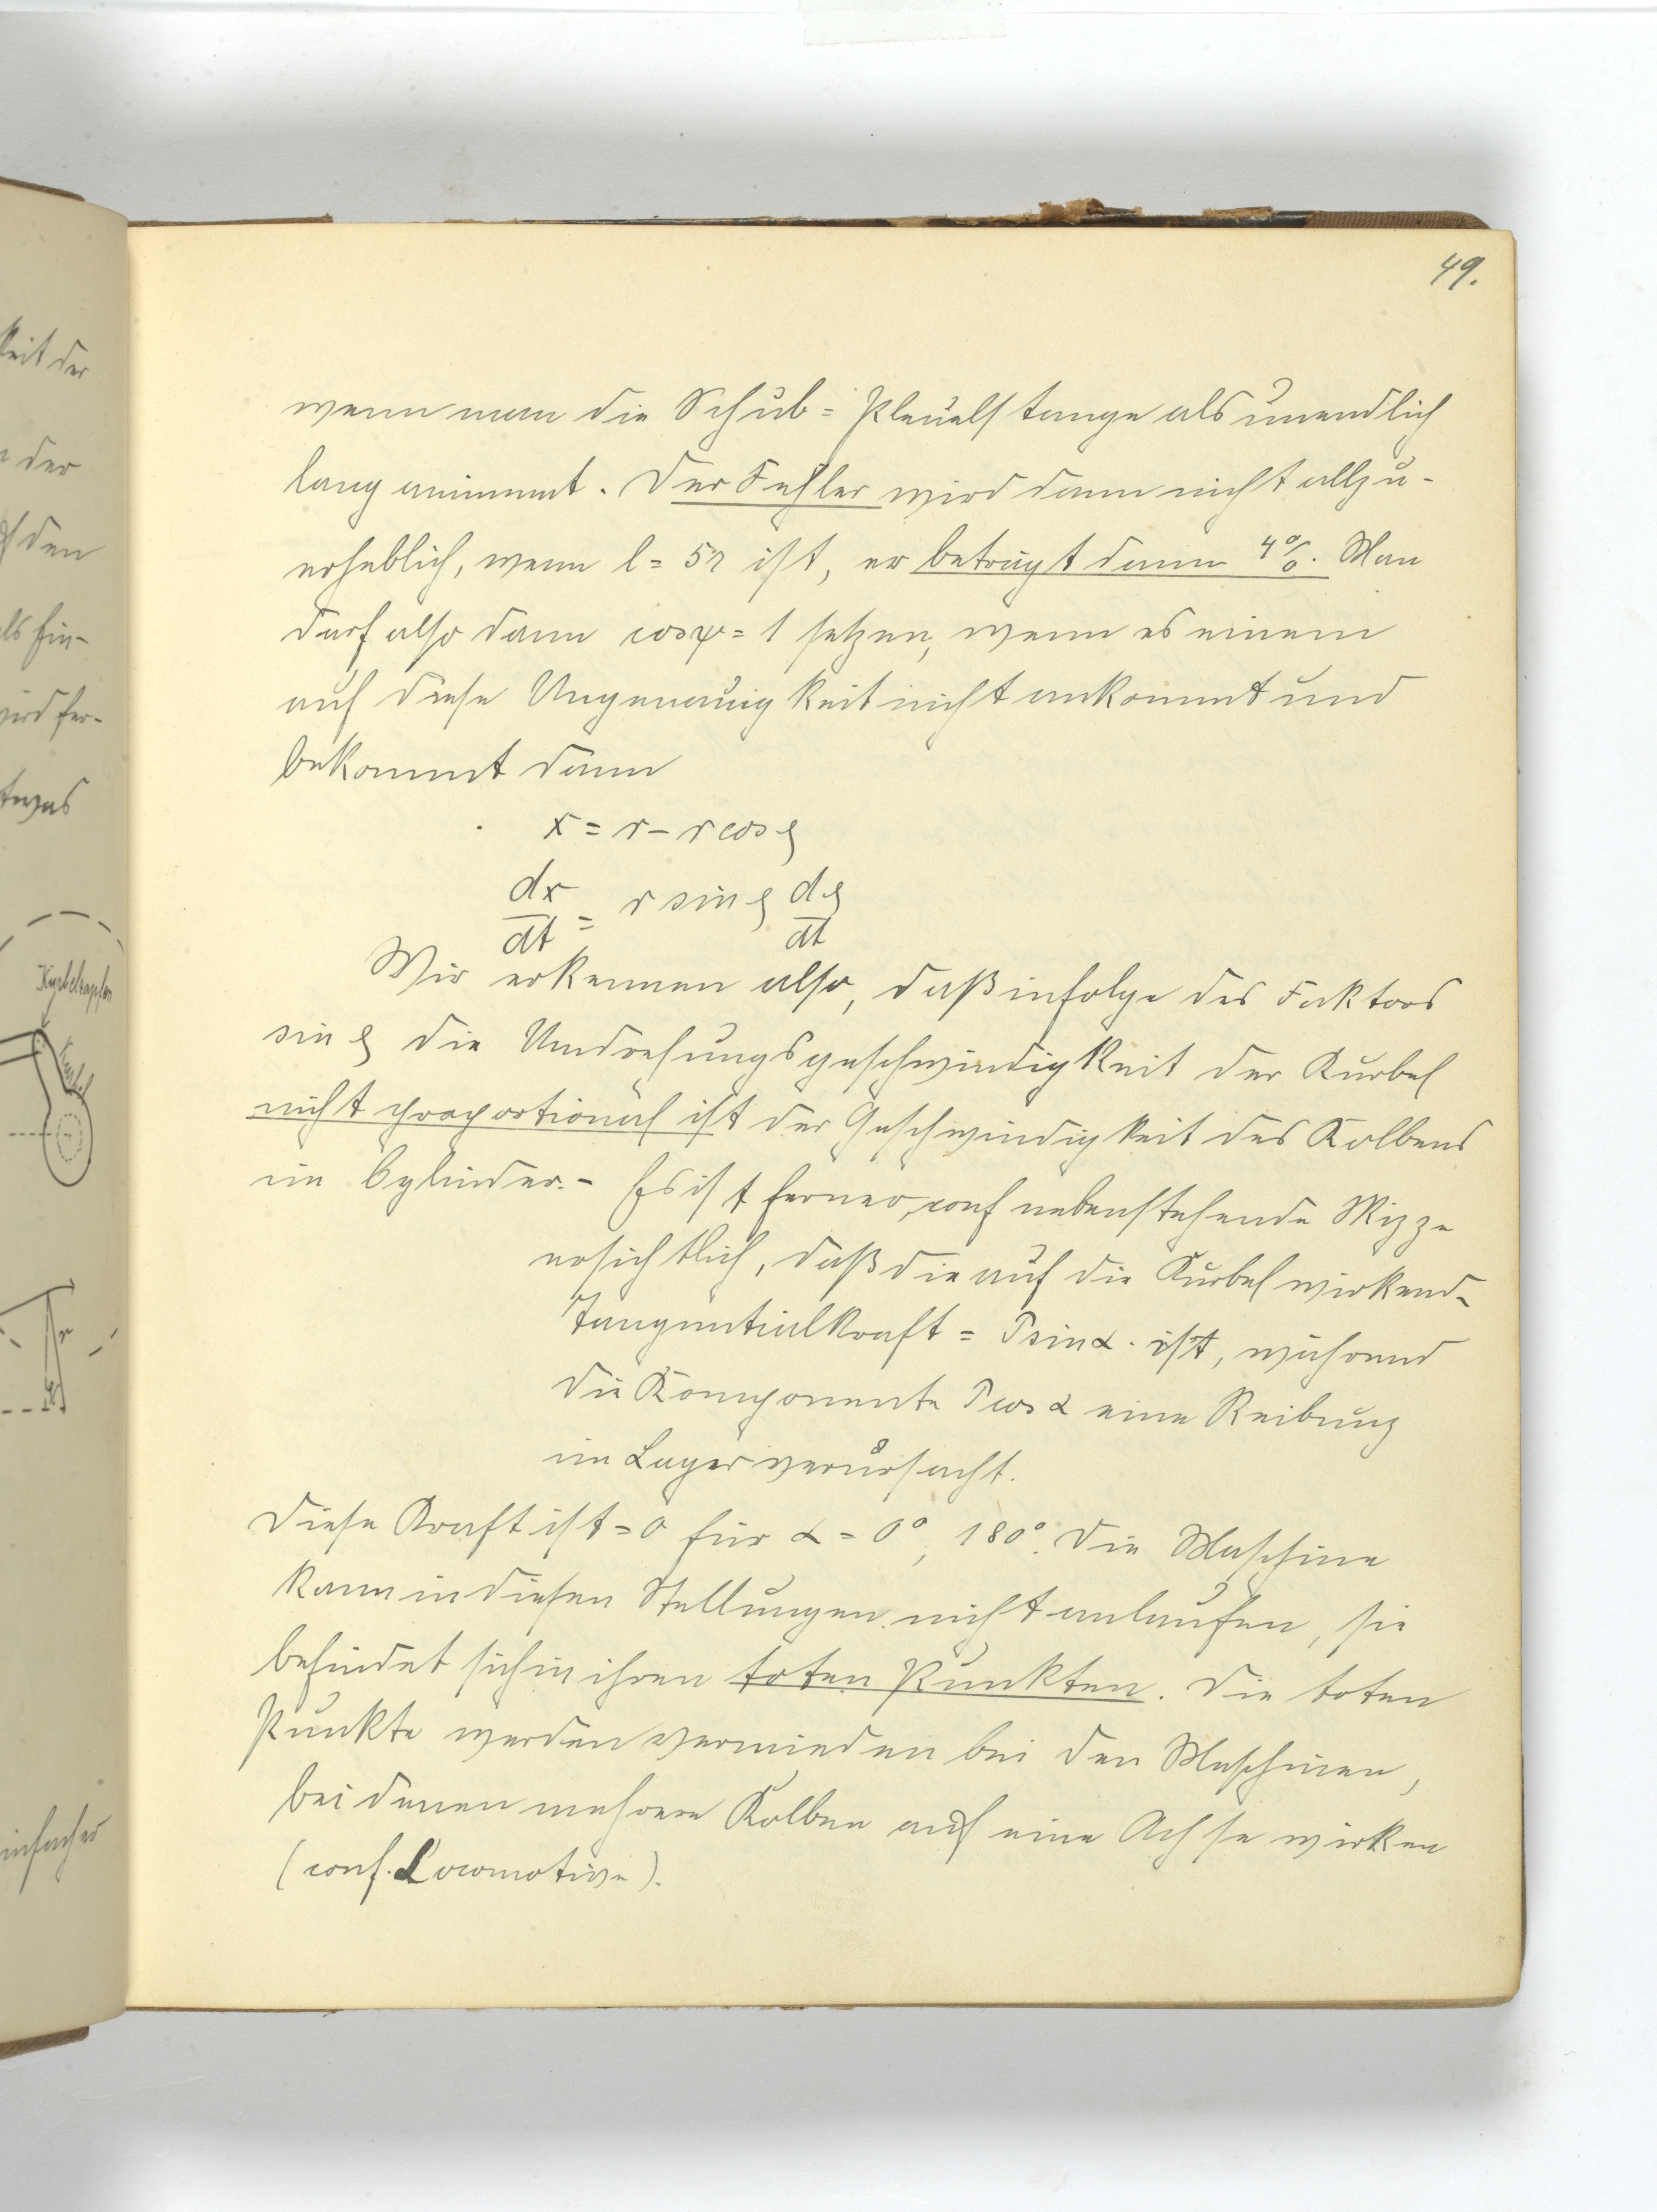 49.
wenn man die Schub = Pleuelstange als unendlich
lang annimmt. Der Fehler wird dann nicht allzu-
erheblich, wenn l = 5r ist, er beträgt dann 4%. Man
darf also dann cos ψ = 1 setzen, wenn es einem
auf diese Ungenauigkeit nicht ankommt und
bekommt dann
x = r - r cos φ
dx/dt = r sin φ dφ/dt
Wir erkennen also, daß infolge des Faktors
sin φ die Umdrehungsgeschwindigkeit der Kurbel
nicht proportional ist der Geschwindigkeit des Kolbens
im Cylinder. - Es ist ferner, conf nebenstehende Skizze
ersichtlich, daß die auf die Kurbel wirkend.
Tangentialkraft = P sin α . ist, während
die Komponente P cos α eine Reibung
im Lager verursacht.
Diese Kraft ist = 0 für α = 0°, 180°. Die Maschine
kann in diesen Stellungen nicht anlaufen, sie
befindet sich in ihren toten Punkten. Die toten
Punkte werden vermieden bei den Maschinen,
bei denen mehrere Kolben auf eine Achse wirken
(conf. Locomotive).
keit der
der
den
als
wird fer-
etwas
Kurbelzapfen
Kurbel
r
einfacher